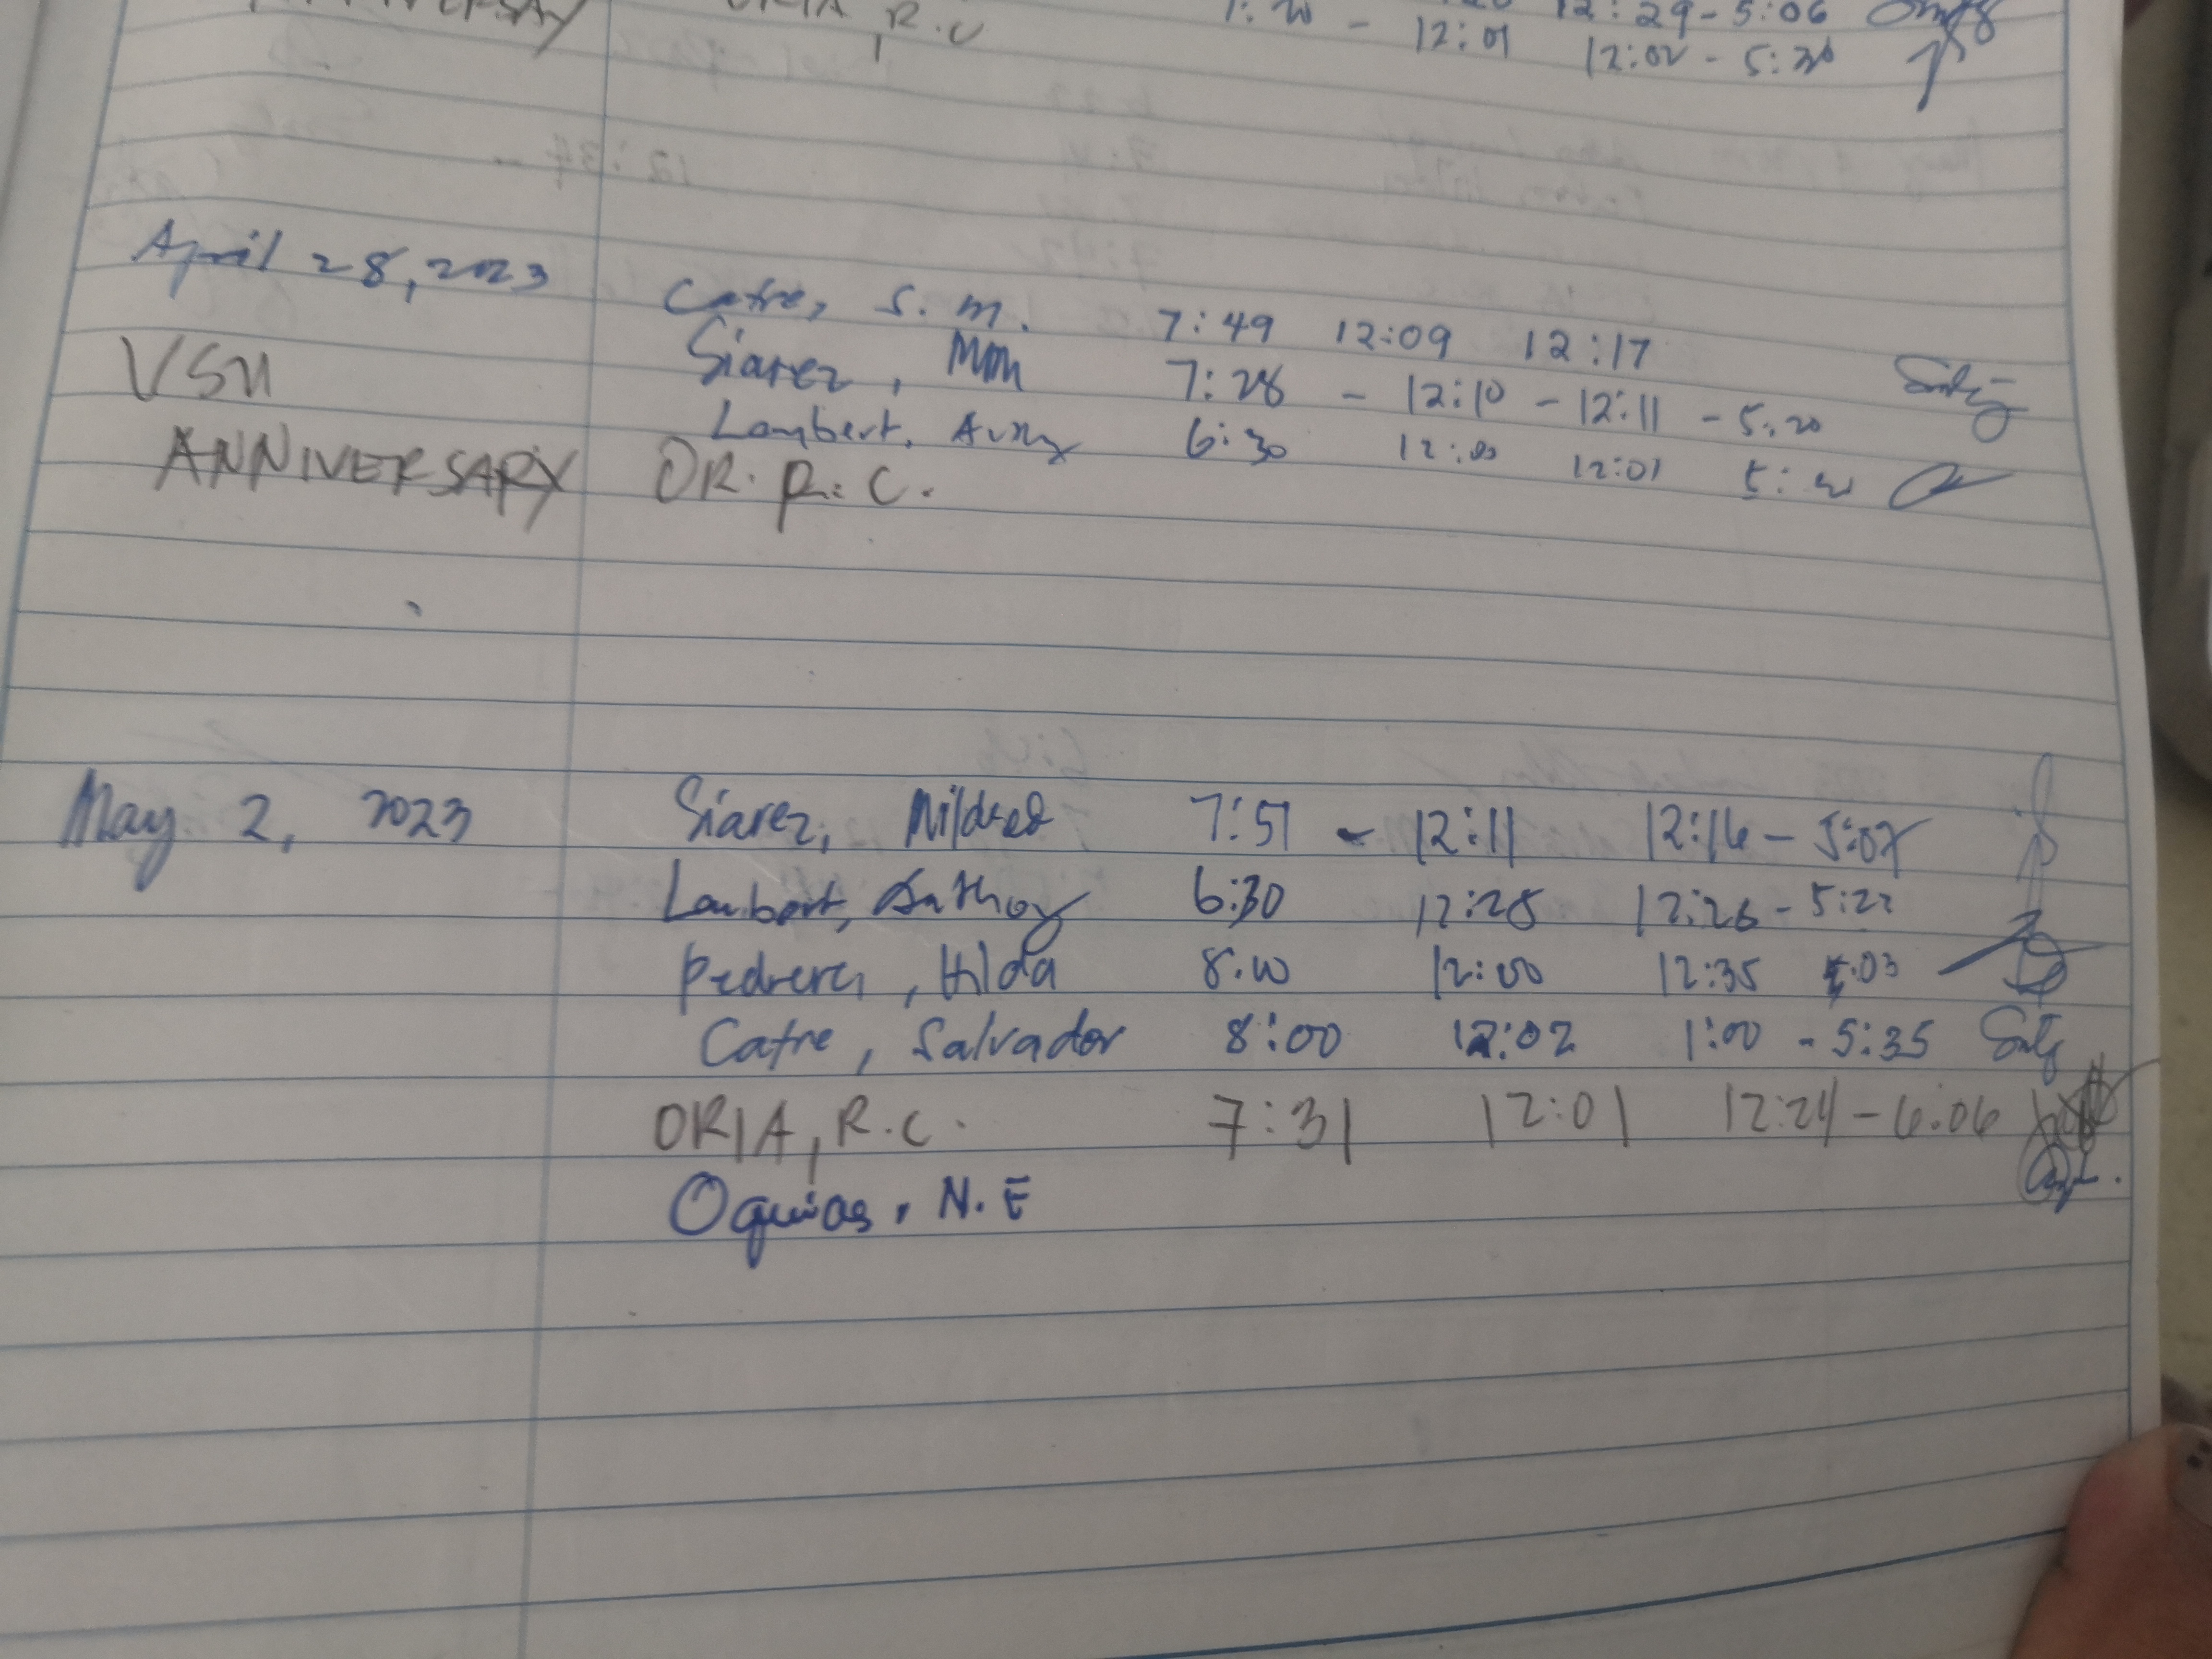 ORIA, R.C 12:29 - 5:06
12:01 12:02 - 5:30
April 28, 2023
Catre, S. M. 7:49 12:09 12:17
VSU Siarez, MM 7:28 - 12:10 - 12:11 - 5:20
Lambert, 6:30 12:00 12:01
ANNIVERSARY OR. R. C.
May 2, 2023 Siarez, Mildred 7:51 - 12:11 12:16 - 5:07
Lambert, Anthony 6:30 12:25 12:26 - 5:22
Pedrera, Hilda 8:00 12:00 12:35 5:03
Catre, Salvador 8:00 12:02 1:00 - 5:35
ORIA, R.C. 7:31 12:01 12:24 - 6:06
Oquias, N.E